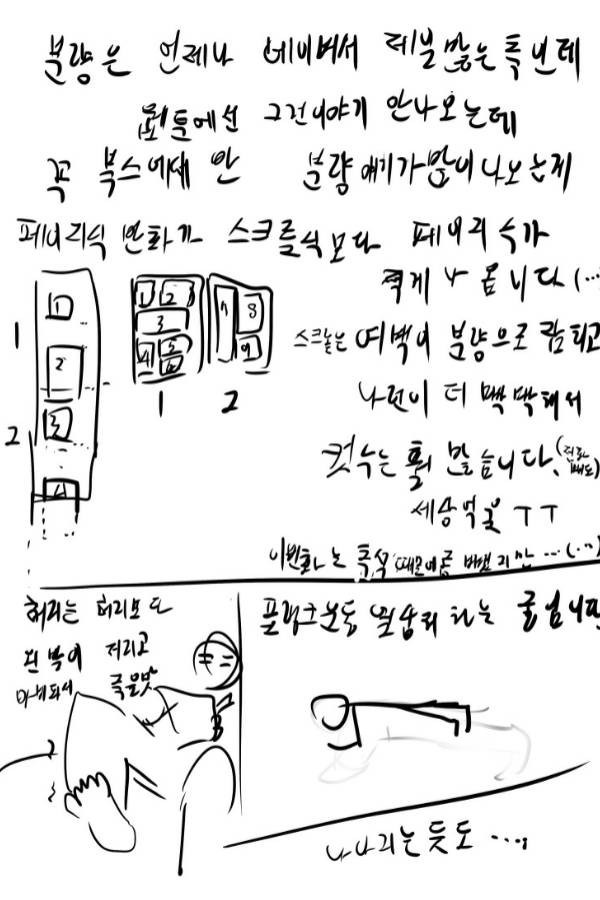 분량은 언제나 네이버서 제일 많는 축인데
뷰들에선 그런이야기 안나오는데
꼭 북스에서 만 분량 얘기가 많이 나오는지
페이지식 만화가 스크롤식보다 페이지수가
적게 나옵니다(...
스크롤은 여백이 분량으로 캄되고
나런이 더 빽빽해서
컷수는 훨 많습니다.
세상억울 ㅜㅜ
이번화는 폭식 때문에좀 뺐지만 ...(..)
1
2
1
2
3
4
1 2
3
4 5
6
7 8
9
1 2
허리는 허리보다
뒨 쪽이 저리고
마비되서 죽을맛
플랭크운동 열심히 하는 굴입니만
나나지는듯도 ...;